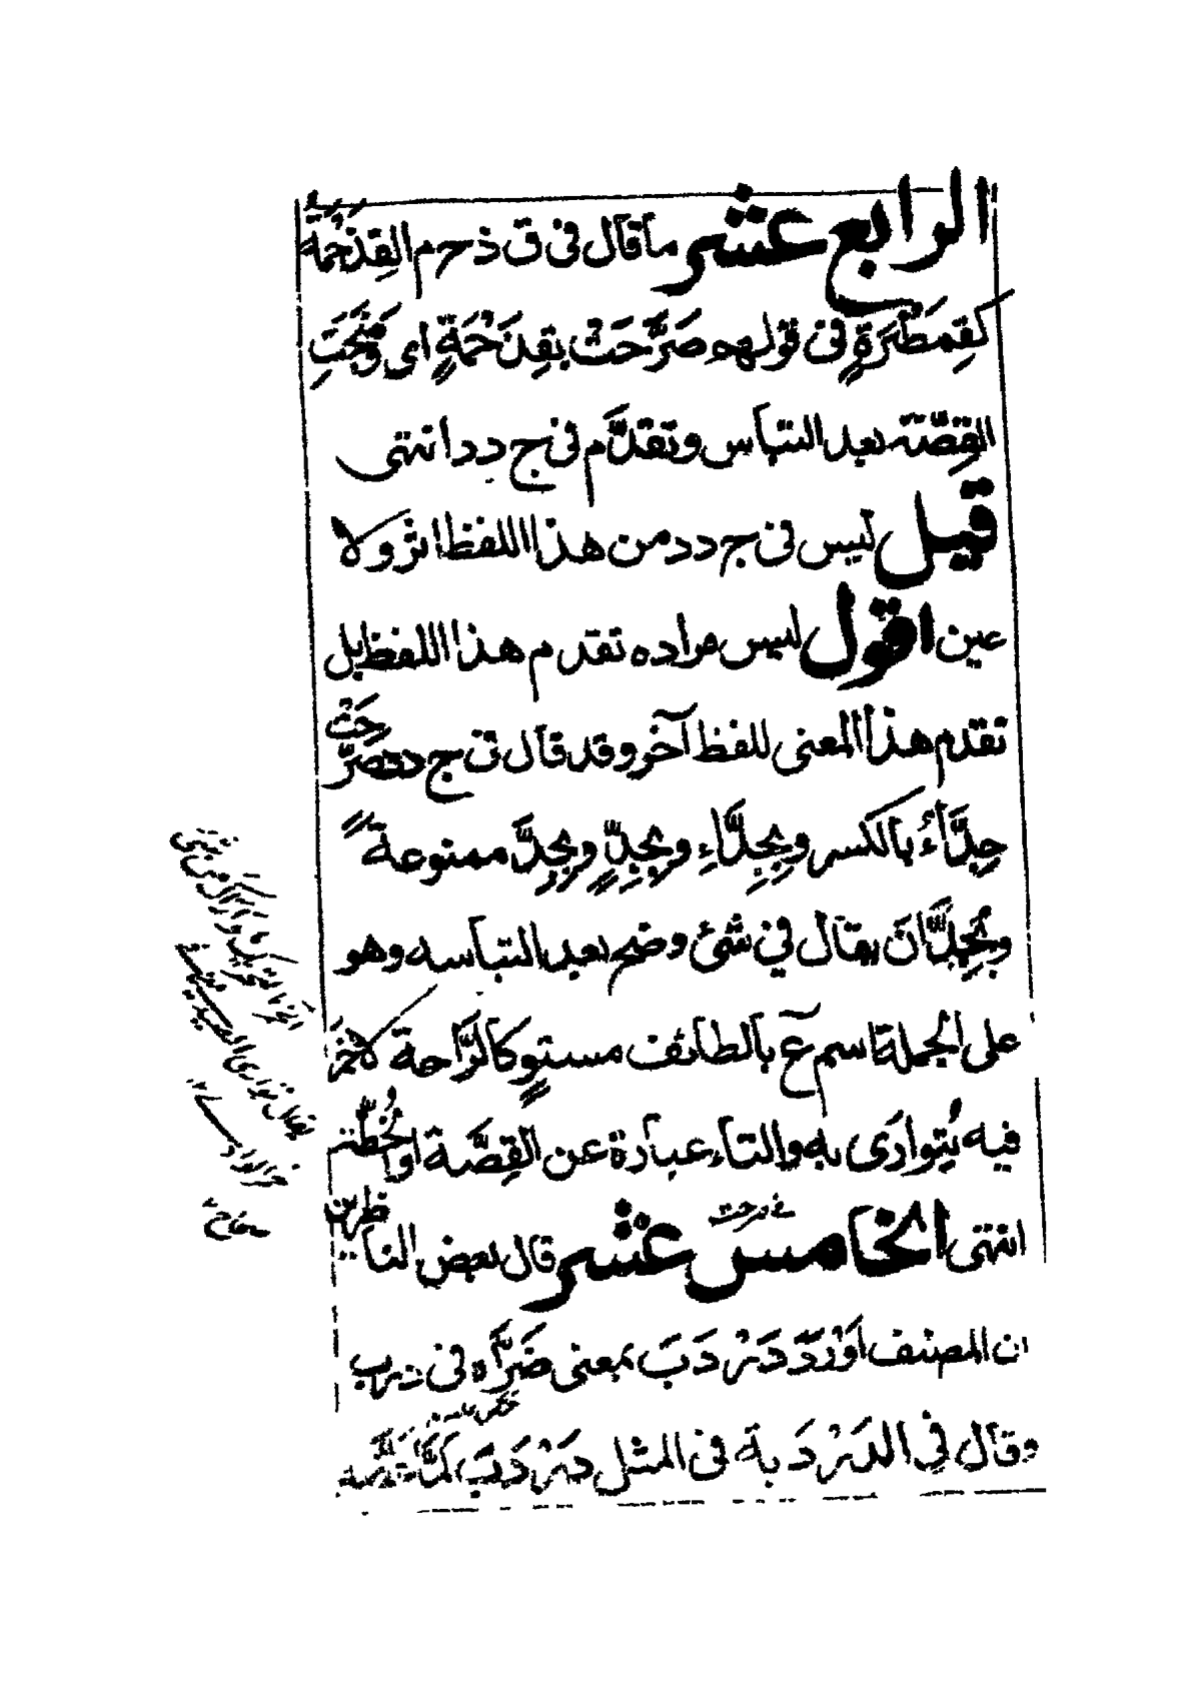 الرابع عشر ما قال فى ق ذ ح م القِذَّحْمَةُ
كقِمَطْرَةٍ فى قولهم صَرَّحَتْ بقِذَّحْمَةٍ اى وَضَحَتِ
القِصّة بعد التباس وتقدَّم فى ج د د انتهى
قيل ليس فى ج د د من هذا اللفظ اثر ولا
عين اقول ليس مراده تقدم هذا اللفظ بل
تقدم هذا المعنى للفظ آخر وقد قال فى ج د د صَرَّحَتْ
جِدَّاءُ بالكسر وبِجِدَّاءِ وبِجِدٍّ وبِجِدَّ ممنوعةً
وبِجِدَّانَ يقال في شئ وضح بعد التباسه وهو
على الجملة اسم ع بالطائف مستوٍ كالرَّاحة لا خمَرَ
فيه يُتوارَى به والتاء عبارة عن القِصَّة او الخُطّة
انتهى الخامس عشر قال بعض الناظرين
ان المصنف اَوْرَدَ دَرْدَبَ بمعنى ضَرَّاه فى درب
وقال في الدَرْدَبة فى المثل دَرْدَبَ لمَّا